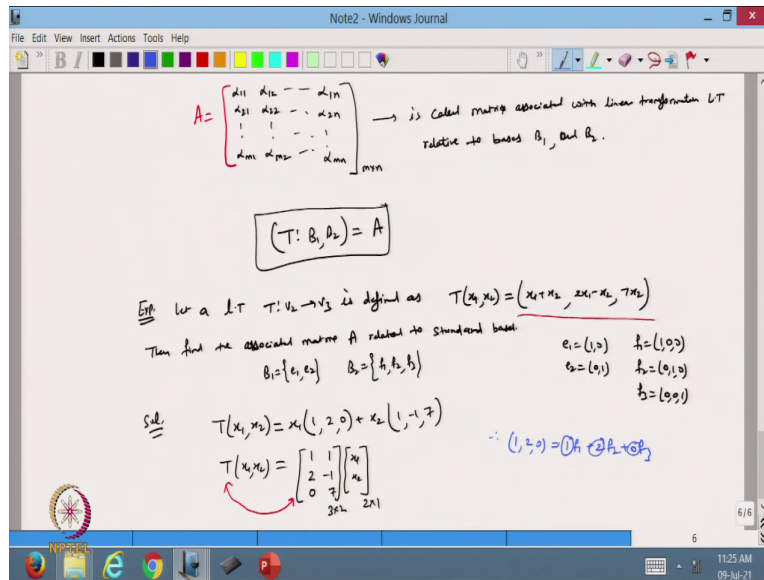 Note2 - Windows Journal
File Edit View Insert Actions Tools Help
A = [α11 α12 -- α1n
α21 α22 -- α2n
⋮ ⋮ -- ⋮
αm1 αm2 -- αmn] m×n → is called matrix associated with linear transformation L.T
relative to bases B1, and B2.
(T: B1, B2) = A
Exp. let a L.T T: V2 → V3 is defined as T(x1, x2) = (x1+x2, 2x1-x2, 7x2)
Then find the associated matrix A related to standard base.
B1 = {e1, e2} B2 = {f1, f2, f3}
e1 = (1,0) f1 = (1,0,0)
e2 = (0,1) f2 = (0,1,0)
f3 = (0,0,1)
Sol. T(x1, x2) = x1(1, 2, 0) + x2(1, -1, 7)
∵ (1, 2, 0) = 1f1 + 2f2 + 0f3
T(x1, x2) = [1 1
2 -1
0 7] 3×2 [x1
x2] 2×1
NPTEL
6/6
6
11:25 AM
09-Jul-21